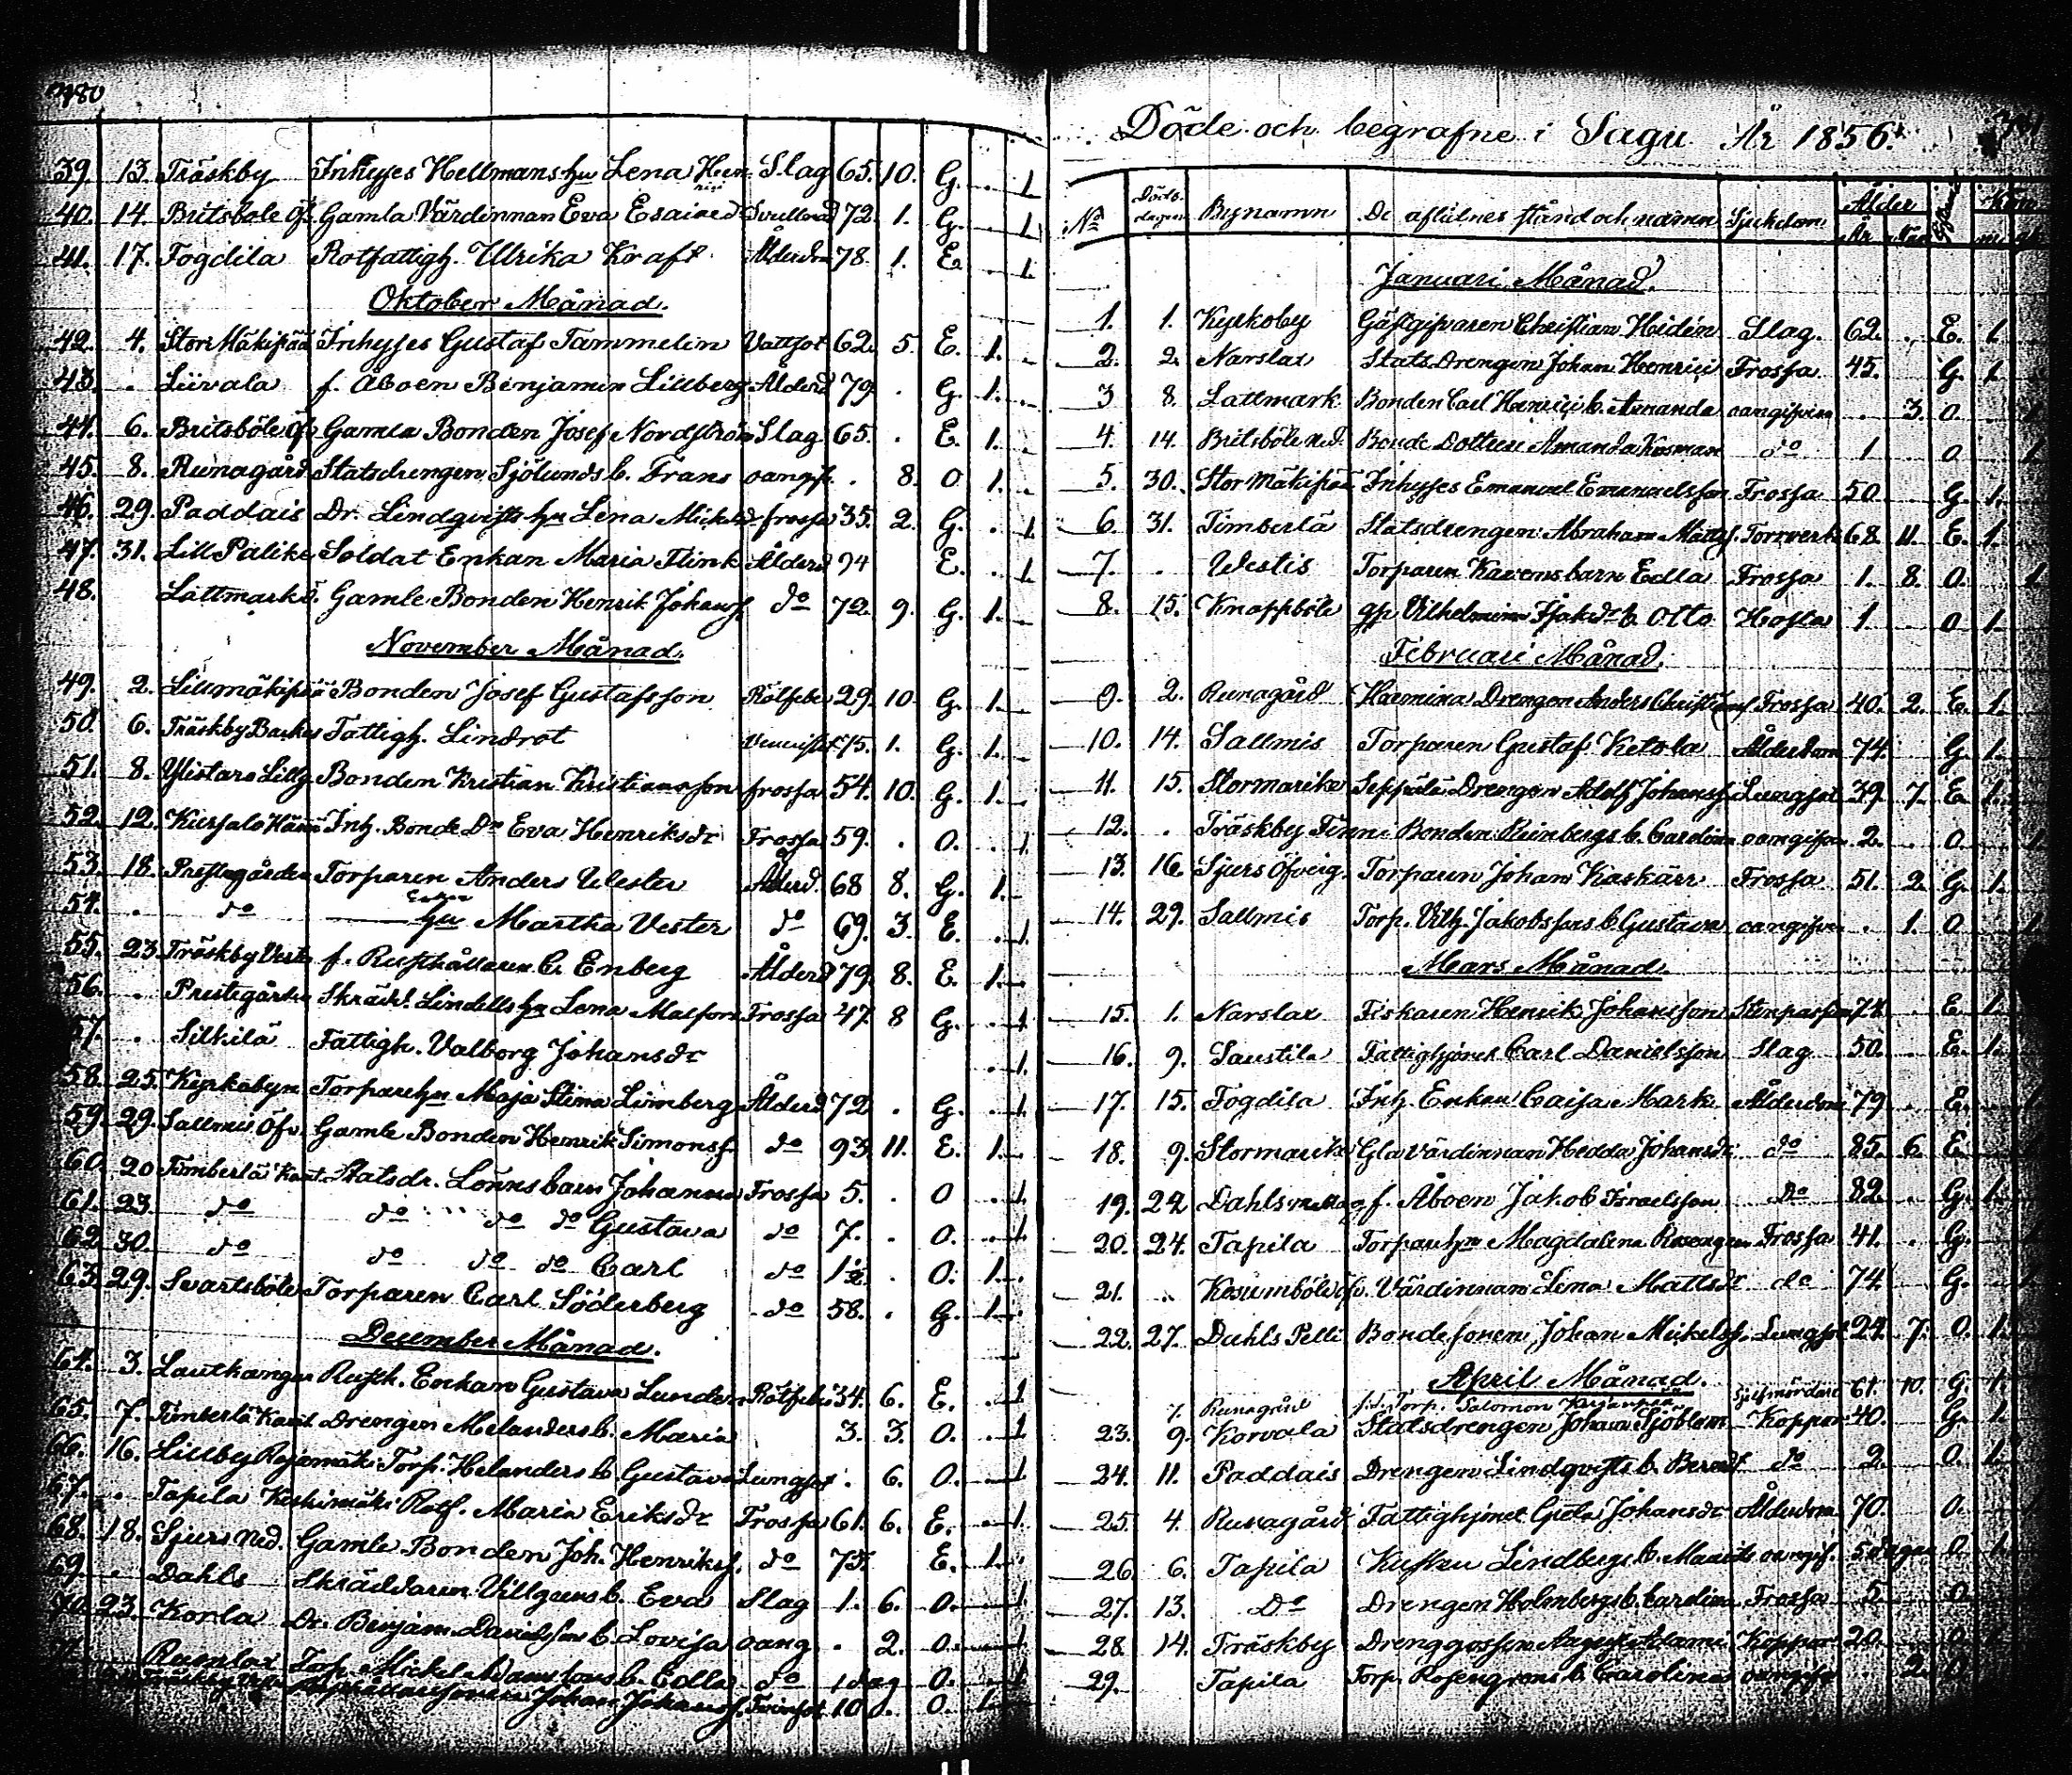 480
39. 13. Träskby Inhyses Hellmans hu Lena Slag 65. 10. G. 1
40. 14. Britsböle Öf. Gamla Värdinnan Eva Esaiæd 72. 1. G. 1
41. 17. Fogdila Rotfattigh. Ulrika Kraft Ålderdom 78 1. E. 1.
Oktober Månad.
42. 4. Inhyses Gustaf Tammelin Vattsot 62. 5. E. 1.
43. . Liivala f. Åboen Benjamin Lillberg Ålderd 79 . G. 1.
44. 6. Britsböle Öf Gamla Bonden Josef Nordström Slag 65. . E. 1.
45. 8. Runagård Statsdrengen Sjölunds b. Frans oangif. . 8. O 1.
46. 29. Paddais Dr. Lindqvists hu Lena frossa 35. 2. G. . 1
47. 31. Lill Palike Soldat Enkan Maria Flink Ålderd 94 E. . 1.
48. Lattmark Gamle Bonden Henrik Johansf. do 72. 9. G. 1.
November Månad.
49. 2. Lillmäkipää Bonden Josef Gustafsson Rötfeber 29. 10. G. 1.
50. 6. Träskby Fattigh. Lindrot 75. 1. G. 1.
51. 8. Ylistaro Lillg. Bonden Kristian Kristiansson frossa 54. 10. G. 1.
52. 12. Inh. Bonde Dr Eva Henriksdr Frossa 59. . O. . 1.
53. 18. Prestegården Torparen Anders Vester Ålderd. 68 8. G. 1.
54. . do Enkan hu Martha Vester do 69. 3. E. . 1.
55. 23. Träskby f. Rusthållaren C. Enberg Ålderd 79. 8. E. 1.
56. . Prestegården Skrädd. Lindells hu Lena Frossa 47. 8 G. . 1
57. . Silkilä Fattigh. Valborg Johansdr . 1.
58. 25. Kyrkobyn Torpare hu Maja Stina Limberg Ålderd 72 . G. . 1.
59. 29. Sallmis Öfv. Gamle Bonden Henrik Simonsf. do 93. 11. E. 1.
60. 20 Timberlä Statsdr. Lönns barn Johanna Frossa 5. . O . 1.
61. 23. do do do do Gustava do 7. . O. . 1
62 30. do do do do Carl do 1½ . O. 1.
63. 29. Svartsböle Torparen Carl Söderberg do 58. . G. 1.
December Månad.
64. 3. Rusth. Enkan Gustava Rötfeber 34. 6. E. . 1
65. 7. Timberlä Drengen Melanders b. Maria 3. 3. O. . 1
66. 16. Lillby Torp. Helanders b. Gustava Lungsot . 6. O. 1
67. . Tapila Rotf. Maria Eriksdr Frossa 61. 6. E. 1.
68. 18. Sjurs Ned. Gamle Bonden Joh. Henriksf. do 75. E. 1.
69. . Dahls Skräddaren Villgrens b. Eva Slag 1. 6. O. 1
70. 23. Korla Dr. Benjam. Davidsson b. Lovisa oang. . 2. O. 1
Torp. Mickel Adamssons b. Edla do 1 dag O. 1
Johan Johansf. 10 . O. 1
Döde och begrafne i Sagu År 1856.
No Döds dagen Bynamn De aflidnes stånd och namn Sjukdom Ålder År Kön
Januari Månad.
1. 1. Kyrkoby Gästgifvaren Christian Hidén Slag. 62. . E. 1
2. 2. Narslax Stats Drengen Johan Henrici Frossa 45. G. 1
3 8. Lattmark Bonden Carl Henrici b. Amanda oangifven . 3. O. 1
4. 14. Britsböle Ned. Bonde Dottren Amanda do 1 O 1
5. 30. Stor Mäkipää Inhyses Emanuel Emanuelsson Frossa 50. G. 1.
6. 31. Timberlä Statsdrengen Abraham Mattsf. Torrverk 68. 11. E. 1.
7. . Westis Torparen barn Edla Frossa 1. 8. O. 1
8. 15. Knappböle qp Vilhelmina b. Otto Hosta 1. O 1.
Februari Månad.
9. 2. Runagård Drengen Anders Frossa 40. 2. E. 1.
10. 14. Sallmis Torparen Gustaf Ketola Ålderdom 74. G. 1.
11. 15. Stormarike Seppälä Drengen Adolf Johansf. Lungsot 39. 7. E. 1.
12. . Träskby Finni Bonden Reinbergs b. Carolina oangifven 2. . O. 1
13. 16. Sjurs Öfverg. Torparen Johan Kaskärr Frossa 51. 2. G. 1.
14. 29. Sallmis Torp. Vilh. Jakobssons b Gustava oangifven . 1. O. 1
Mars Månad.
15. 1. Narslax Fiskaren Henrik Johansson Stenpassion 74. E. 1.
16. 9. Saustila Fattighjonet Carl Danielsson Slag 50. . E. 1.
17. 15. Fogdila Inh. Enkan Caisa Mark Ålderdom 79 . E. 1
18. 9. Stormarike Gla Värdinnan Hedda Johansdr do 85. 6. E.
19. 22 Dahls f. Åboen Jakob Israelsson do 82. . G. 1.
20. 24. Tapila Torpare hu Magdalena Rosengren Frossa 41. . G.
21. . Värdinnan Lena Mattsdr do 74. G.
22. 27. Dahls Pelli Bondesonen Johan Mickelsf. Lungsot 22. 7. O. 1.
April Månad.
7. Runagård f.d. Torp. Salomon Sjelfmördare 61. 10. G. 1.
23. 9. Korvala Statsdrengen Johan Sjöblom Koppor 40. G. 1.
24. 11. Paddais Drengen Lindqvists b. Berndt do 2. O. 1.
25. 4. Runagård Fattighjonet Greta Johansdr Ålderdom 70. O.
26. 6. Tapila Kusken Lindbergs b. oangif. 5 dagar O. 1
27. 13. Do Drengen Holmbergs b. Carolina Frossa 5. O
28 14. Träskby Drenggossen August Adami Koppor 20. O 1
29. Tapila Torp. Rosengrens b. Carolina oangifv . 2. O